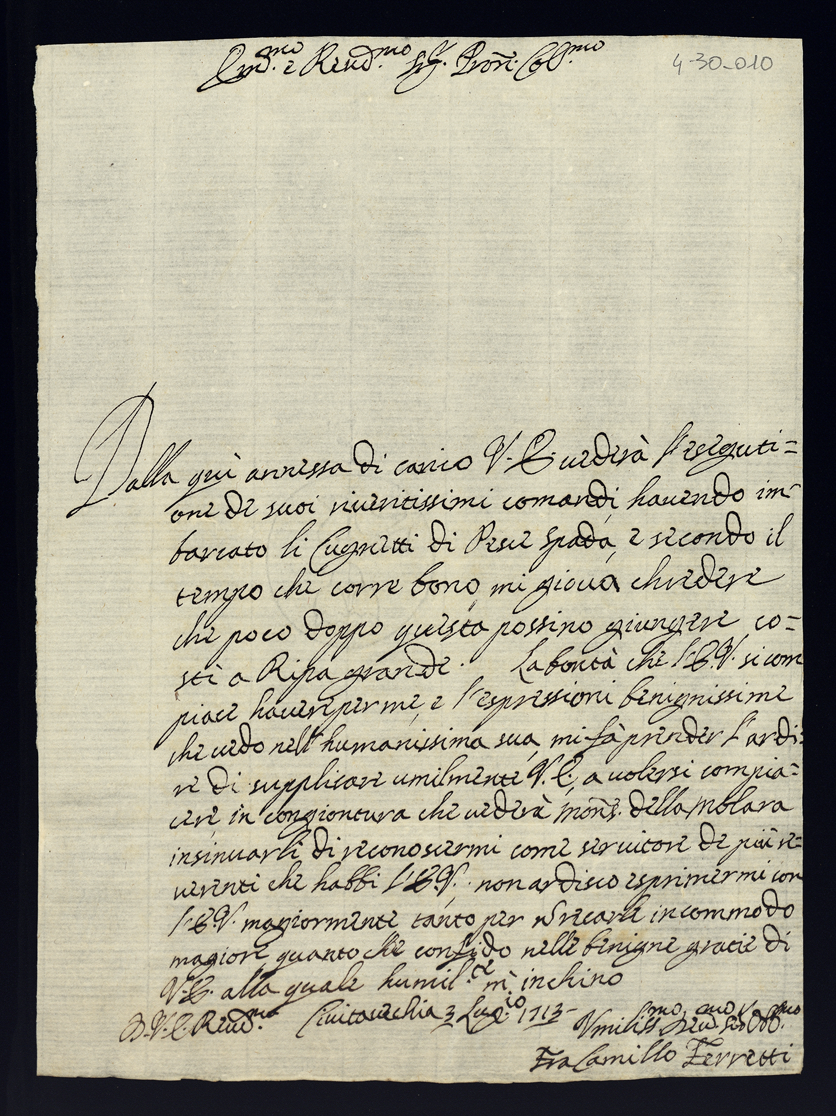 Em.mo e Reud.mo Sig.r Pron: Col.mo
4-30-010
Dalla quì annessa di carico V. E. uederà l'esequti=
one de suoi riueritissimi comandi, hauendo im=
barcato li Cugnetti di Pesce spada, e secondo il
tempo che corre bono, mi gioua chredere
che poco doppo questa possino giungere co=
stì a Ripa grande. La bontà che l'E.V. si com
piace hauere per me, e l'espressioni benignissime
che uedo nell'humanissima sua, mi fà prender l'ardi=
re di supplicare umilmente V. E. a uolersi compia=
cere in congiontura che uederà Mons. della Molara
insinuarli di reconoscermi come seruitore de più re=
uerenti che habbi l'E.V. non ardisco esprimermi con
l'E.V. magiormente tanto per n recarle incommodo
magiore quanto che confido nelle benigne gratie di
V. E. alla quale humil.te m'inchino
D. V. E. Reud.ma Ciuitauechia 3 Lug.io 1713
Vmiliss.mo Seru.
Fra Camillo Ferretti